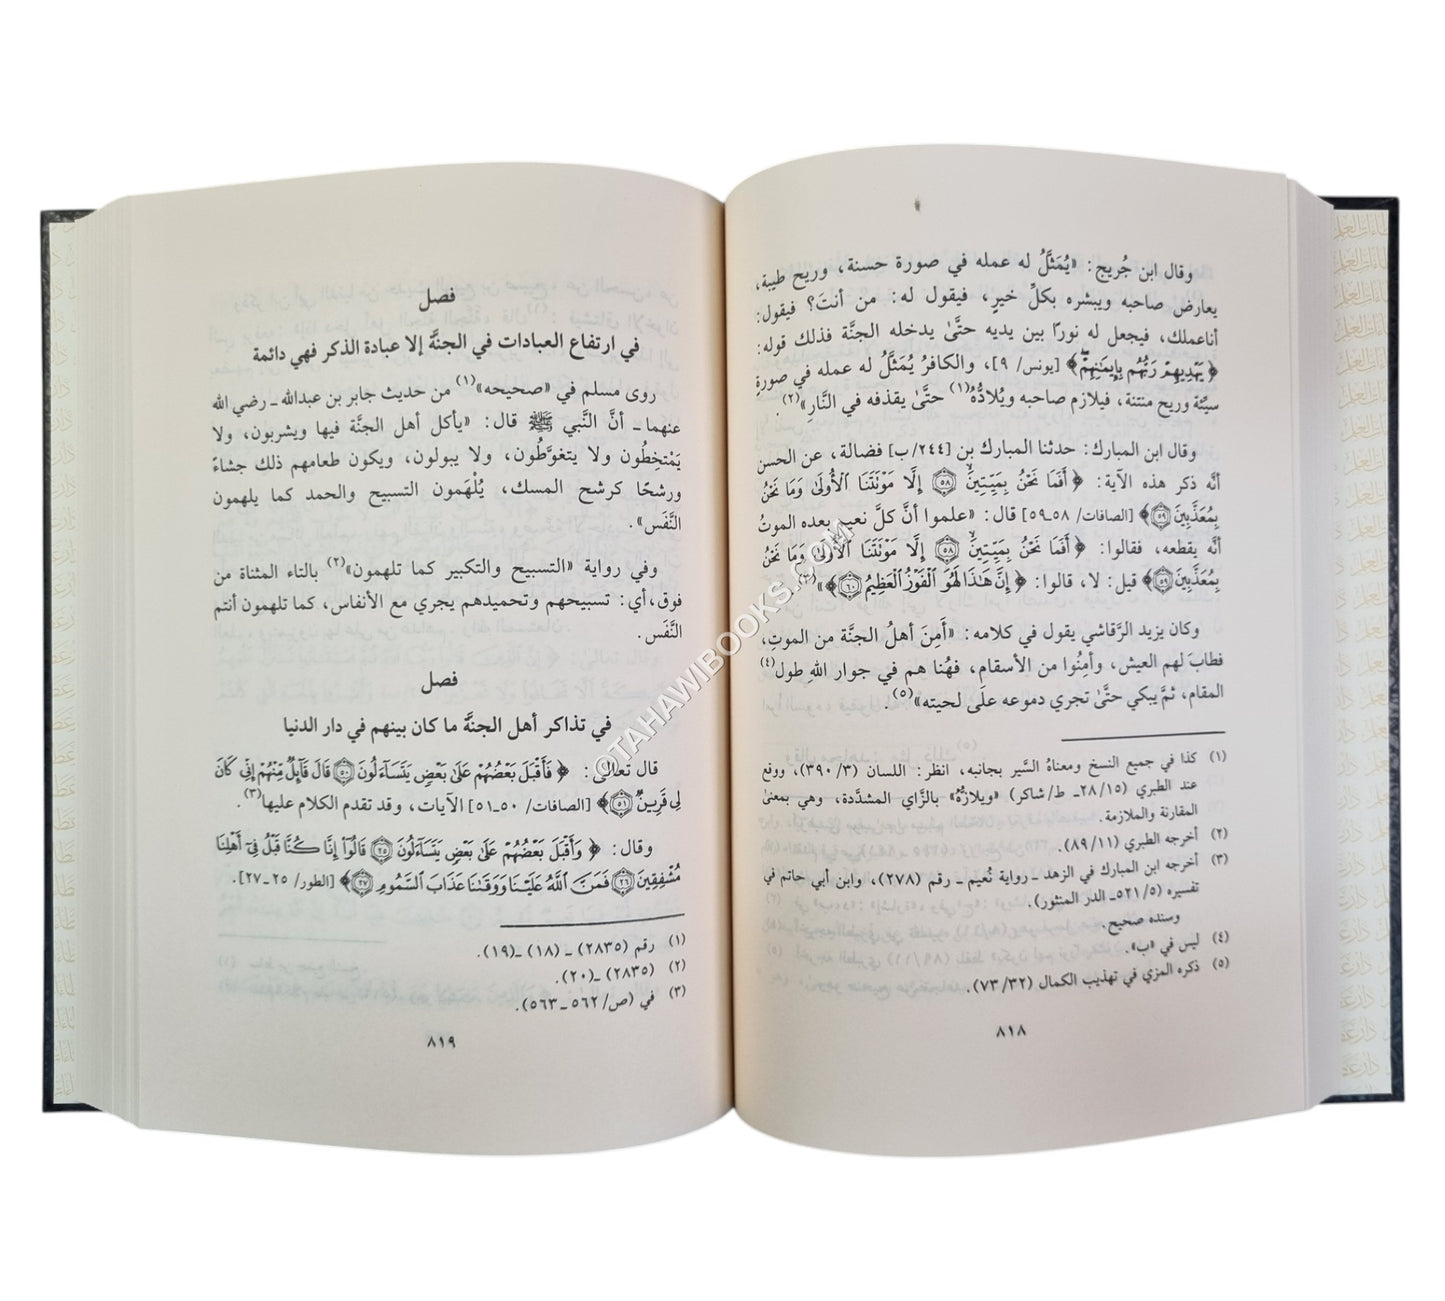 وقال ابن جُريج: «يُمَثَّلُ له عمله في صورة حسنة، وريح طيبة،
يعارض صاحبه ويبشره بكلِّ خيرٍ، فيقول له: من أنتَ؟ فيقول:
أناعملك، فيجعل له نورًا بين يديه حتَّىٰ يدخله الجنَّة فذلك قوله:
﴿يَهْدِيهِمْ رَبُّهُم بِإِيمَٰنِهِمْ﴾ [يونس/ ٩]، والكافرُ يُمَثَّلُ له عمله في صورةٍ
سيِّئة وريح منتنة، فيلازم صاحبه ويُلادُّهُ(١) حتَّىٰ يقذفه في النَّارِ»(٢).
وقال ابن المبارك: حدثنا المبارك بن [٢٤٤/ب] فضالة، عن الحسن
أنَّه ذكر هذه الآية: ﴿أَفَمَا نَحْنُ بِمَيِّتِينَ ٥٨ إِلَّا مَوْتَتَنَا ٱلْأُولَىٰ وَمَا نَحْنُ
بِمُعَذَّبِينَ ٥٩﴾ [الصافات/ ٥٨ـ٥٩] قال: «علموا أنَّ كلَّ نعيمٍ بعده الموتُ
أنَّه يقطعه، فقالوا: ﴿أَفَمَا نَحْنُ بِمَيِّتِينَ ٥٨ إِلَّا مَوْتَتَنَا ٱلْأُولَىٰ وَمَا نَحْنُ
بِمُعَذَّبِينَ ٥٩﴾ قيل: لا، قالوا: ﴿إِنَّ هَٰذَا لَهُوَ ٱلْفَوْزُ ٱلْعَظِيمُ ٦٠﴾»(٣).
وكان يزيد الرَّقاشي يقول في كلامه: «أَمِنَ أهلُ الجنَّة من الموتِ،
فطابَ لهم العيش، وأمِنُوا من الأسقامِ، فهُنا هم في جوار اللهِ طول(٤)
المقام، ثمَّ يبكي حتَّىٰ تجري دموعه علَى لحيته»(٥).
(١) كذا في جميع النسخ ومعناهُ السَّير بجانبه، انظر: اللسان (٣/ ٣٩٠)، ووقع
عند الطبري (١٥/ ٢٨ـ ط/شاكر) «ويلازُّهُ» بالزَّاي المشدَّدة، وهي بمعنىٰ
المقارنة والملازمة.
(٢) أخرجه الطبري (١١/ ٨٩).
(٣) أخرجه ابن المبارك في الزهد ـ رواية نُعيم ـ رقم (٢٧٨)، وابن أبي حاتم في
تفسيره (٥/ ٥٢١ـ الدر المنثور).
وسنده صحيح.
(٤) ليس في «ب».
(٥) ذكره المزي في تهذيب الكمال (٣٢/ ٧٣).
٨١٨
فصل
في ارتفاع العبادات في الجنَّة إلا عبادة الذكر فهي دائمة
روى مسلم في «صحيحه»(١) من حديث جابر بن عبدالله ـ رضي الله
عنهما ـ أنَّ النَّبي ﷺ قال: «يأكل أهل الجنَّة فيها ويشربون، ولا
يَمْتخِطُون ولا يتغوَّطُون، ولا يبولون، ويكون طعامهم ذلك جشاءً
ورشحًا كرشح المسك، يُلْهَمون التسبيح والحمد كما يلهمون
النَّفَس».
وفي رواية «التسبيح والتكبير كما تلهمون»(٢) بالتاء المثناة من
فوق، أي: تسبيحهم وتحميدهم يجري مع الأنفاس، كما تلهمون أنتم
النَّفَس.
فصل
في تذاكر أهل الجنَّة ما كان بينهم في دار الدنيا
قال تعالىٰ: ﴿فَأَقْبَلَ بَعْضُهُمْ عَلَىٰ بَعْضٍ يَتَسَآءَلُونَ ٥٠ قَالَ قَآئِلٌ مِّنْهُمْ إِنِّي كَانَ
لِي قَرِينٌ ٥١﴾ [الصافات/ ٥٠ـ٥١] الآيات، وقد تقدم الكلام عليها(٣).
وقال: ﴿وَأَقْبَلَ بَعْضُهُمْ عَلَىٰ بَعْضٍ يَتَسَآءَلُونَ ٢٥ قَالُوٓا۟ إِنَّا كُنَّا قَبْلُ فِىٓ أَهْلِنَا
مُشْفِقِينَ ٢٦ فَمَنَّ ٱللَّهُ عَلَيْنَا وَوَقَىٰنَا عَذَابَ ٱلسَّمُومِ ٢٧﴾ [الطور/ ٢٥ـ٢٧].
(١) رقم (٢٨٣٥) ـ (١٨) ـ(١٩).
(٢) (٢٨٣٥) ـ(٢٠).
(٣) في (ص/ ٥٦٢ـ ٥٦٣).
٨١٩
©TAHAWIBOOKS.COM